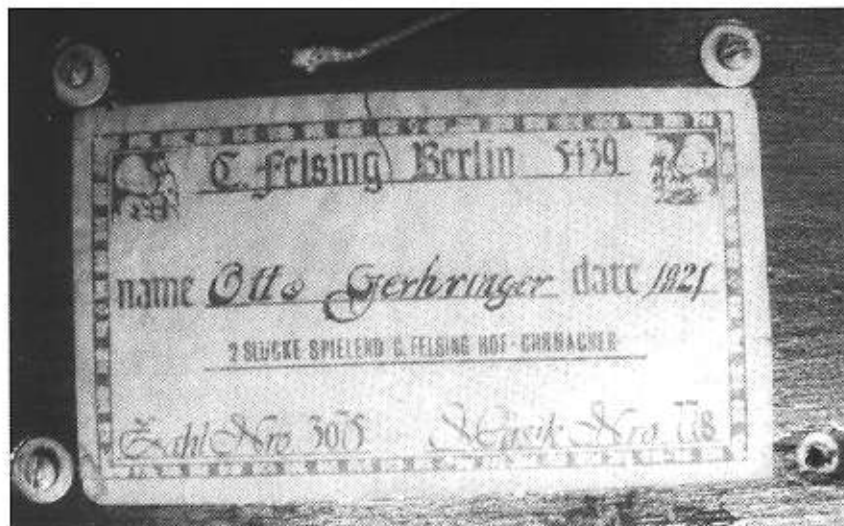 C. Felsing Berlin 5439
name Otto Gerhringer date 1921
2 SLÜCKE SPIELEND C. FELSING HOF-CHRMACHER
Zahl Nro 3075 Musik Nro 778